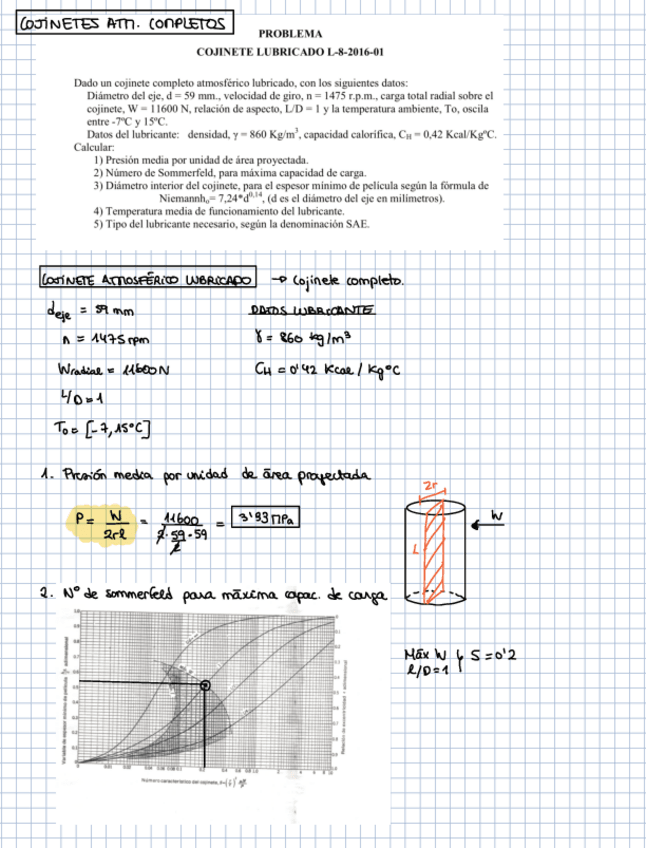 COJINETES ATM. COMPLETOS
PROBLEMA
COJINETE LUBRICADO L-8-2016-01
Dado un cojinete completo atmosférico lubricado, con los siguientes datos:
Diámetro del eje, d = 59 mm., velocidad de giro, n = 1475 r.p.m., carga total radial sobre el
cojinete, W = 11600 N, relación de aspecto, L/D = 1 y la temperatura ambiente, To, oscila
entre -7ºC y 15ºC.
Datos del lubricante: densidad, γ = 860 Kg/m³, capacidad calorífica, C_H = 0,42 Kcal/KgºC.
Calcular:
1) Presión media por unidad de área proyectada.
2) Número de Sommerfeld, para máxima capacidad de carga.
3) Diámetro interior del cojinete, para el espesor mínimo de película según la fórmula de
Niemannh₀= 7,24*d^0,14, (d es el diámetro del eje en milímetros).
4) Temperatura media de funcionamiento del lubricante.
5) Tipo del lubricante necesario, según la denominación SAE.
COJINETE ATMOSFÉRICO LUBRICADO → Cojinete completo.
d_eje = 59 mm
DATOS LUBRICANTE
n = 1475 rpm
γ = 860 kg/m³
W_radial = 11600 N
C_H = 0'42 Kcal / Kg°C
L/D = 1
T₀ = [-7, 15°C]
1. Presión media por unidad de área proyectada
P = W / 2rl = 11600 / 2·59/2·59 = 3'33 MPa
2r
W
L
2. Nº de sommerfeld para máxima capac. de carga
Máx W
l/D=1
S = 0'2